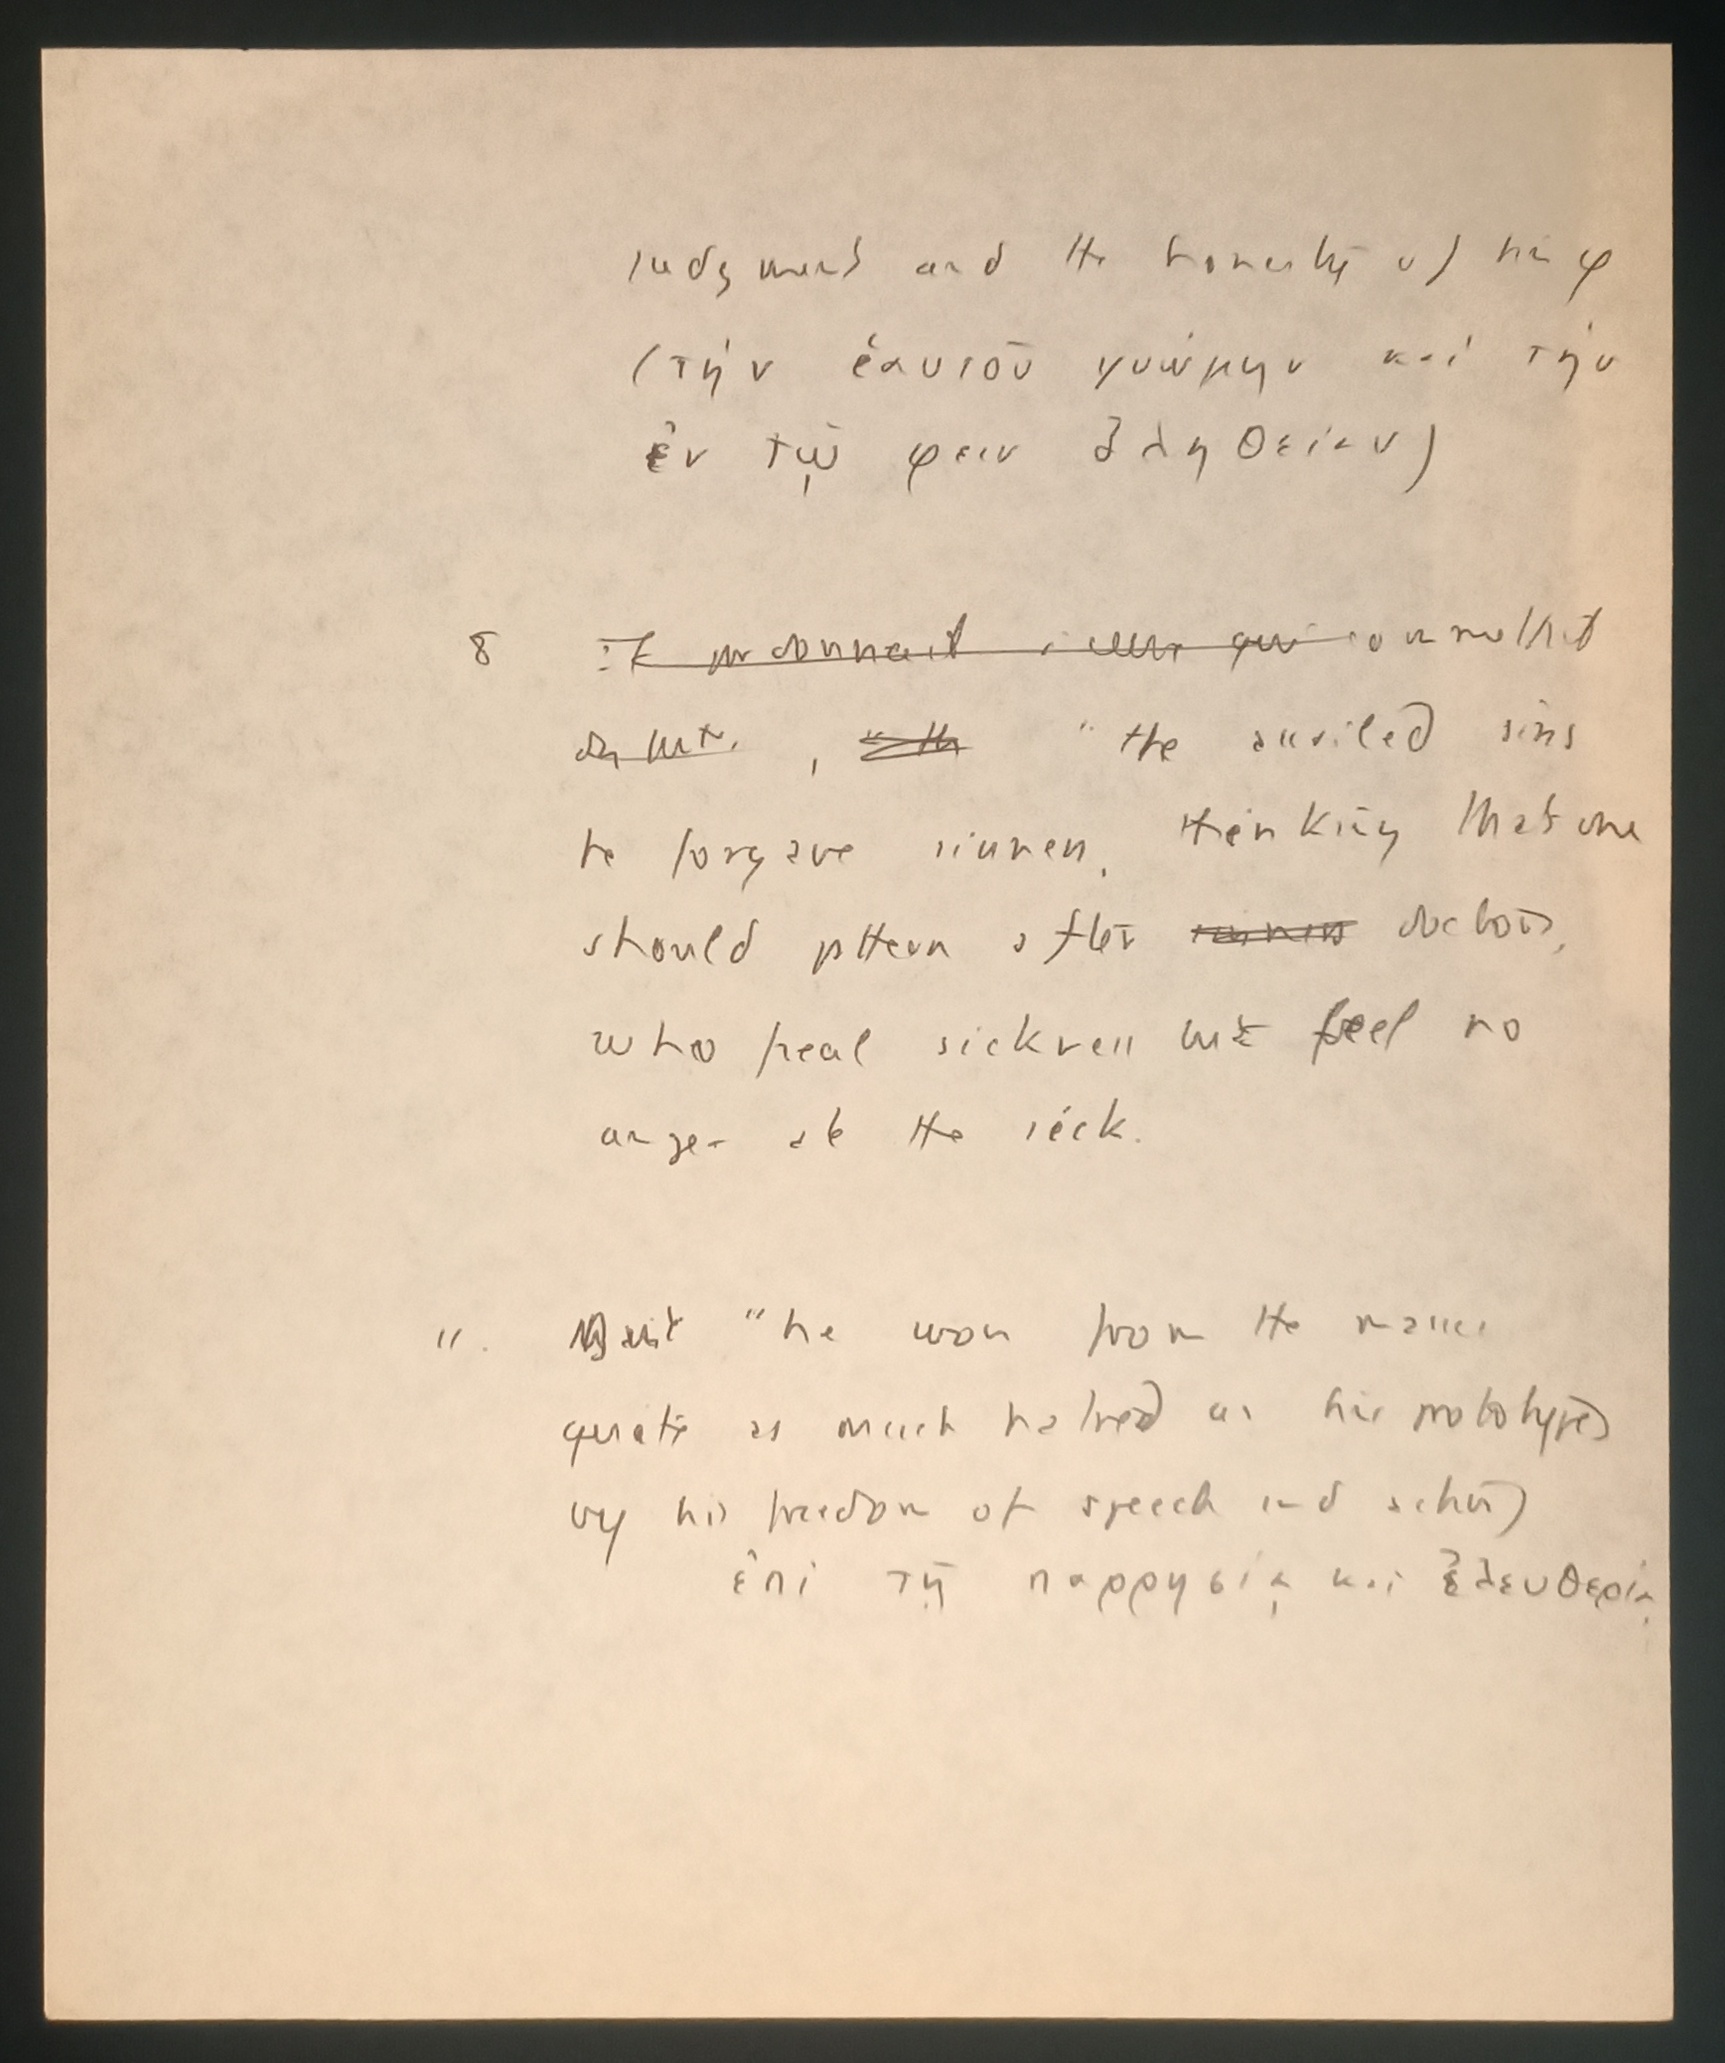 judgment and the honesty of his φ
(τὴν ἑαυτοῦ γνώμην καὶ τὴν
ἐν τῷ φειν ἀληθείαν)
8 Il pardonnait à ceux qui
, " "He assailed sins
he forgave sinners, thinking that one
should pttern after sinners doctors,
who heal sickness but feel no
anger at the sick.
11. But "he won from the masses
quite as much hatred as his prototypes
by his freedom of speech and
ἐπὶ τῇ παρρησίᾳ καὶ ἐλευθερίᾳ